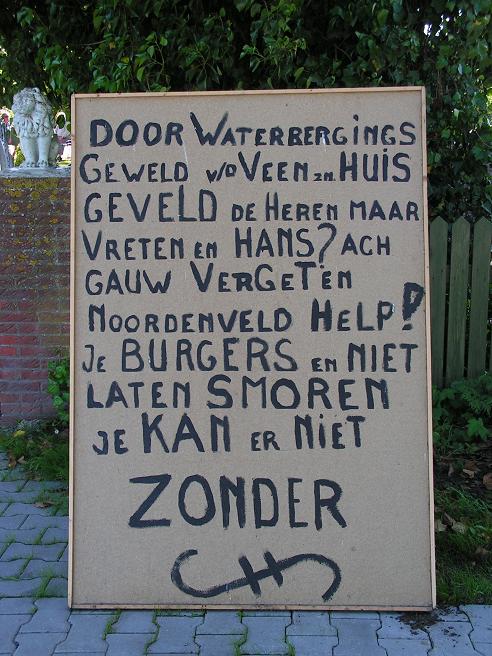 DOOR WATERBERGINGS
GEWELD v/D VEEN ZN HUIS
GEVELD DE HEREN MAAR
VRETEN EN HANS? ACH
GAUW VERGETEN
NOORDENVELD HELP!
JE BURGERS EN NIET
LATEN SMOREN
JE KAN ER NIET
ZONDER